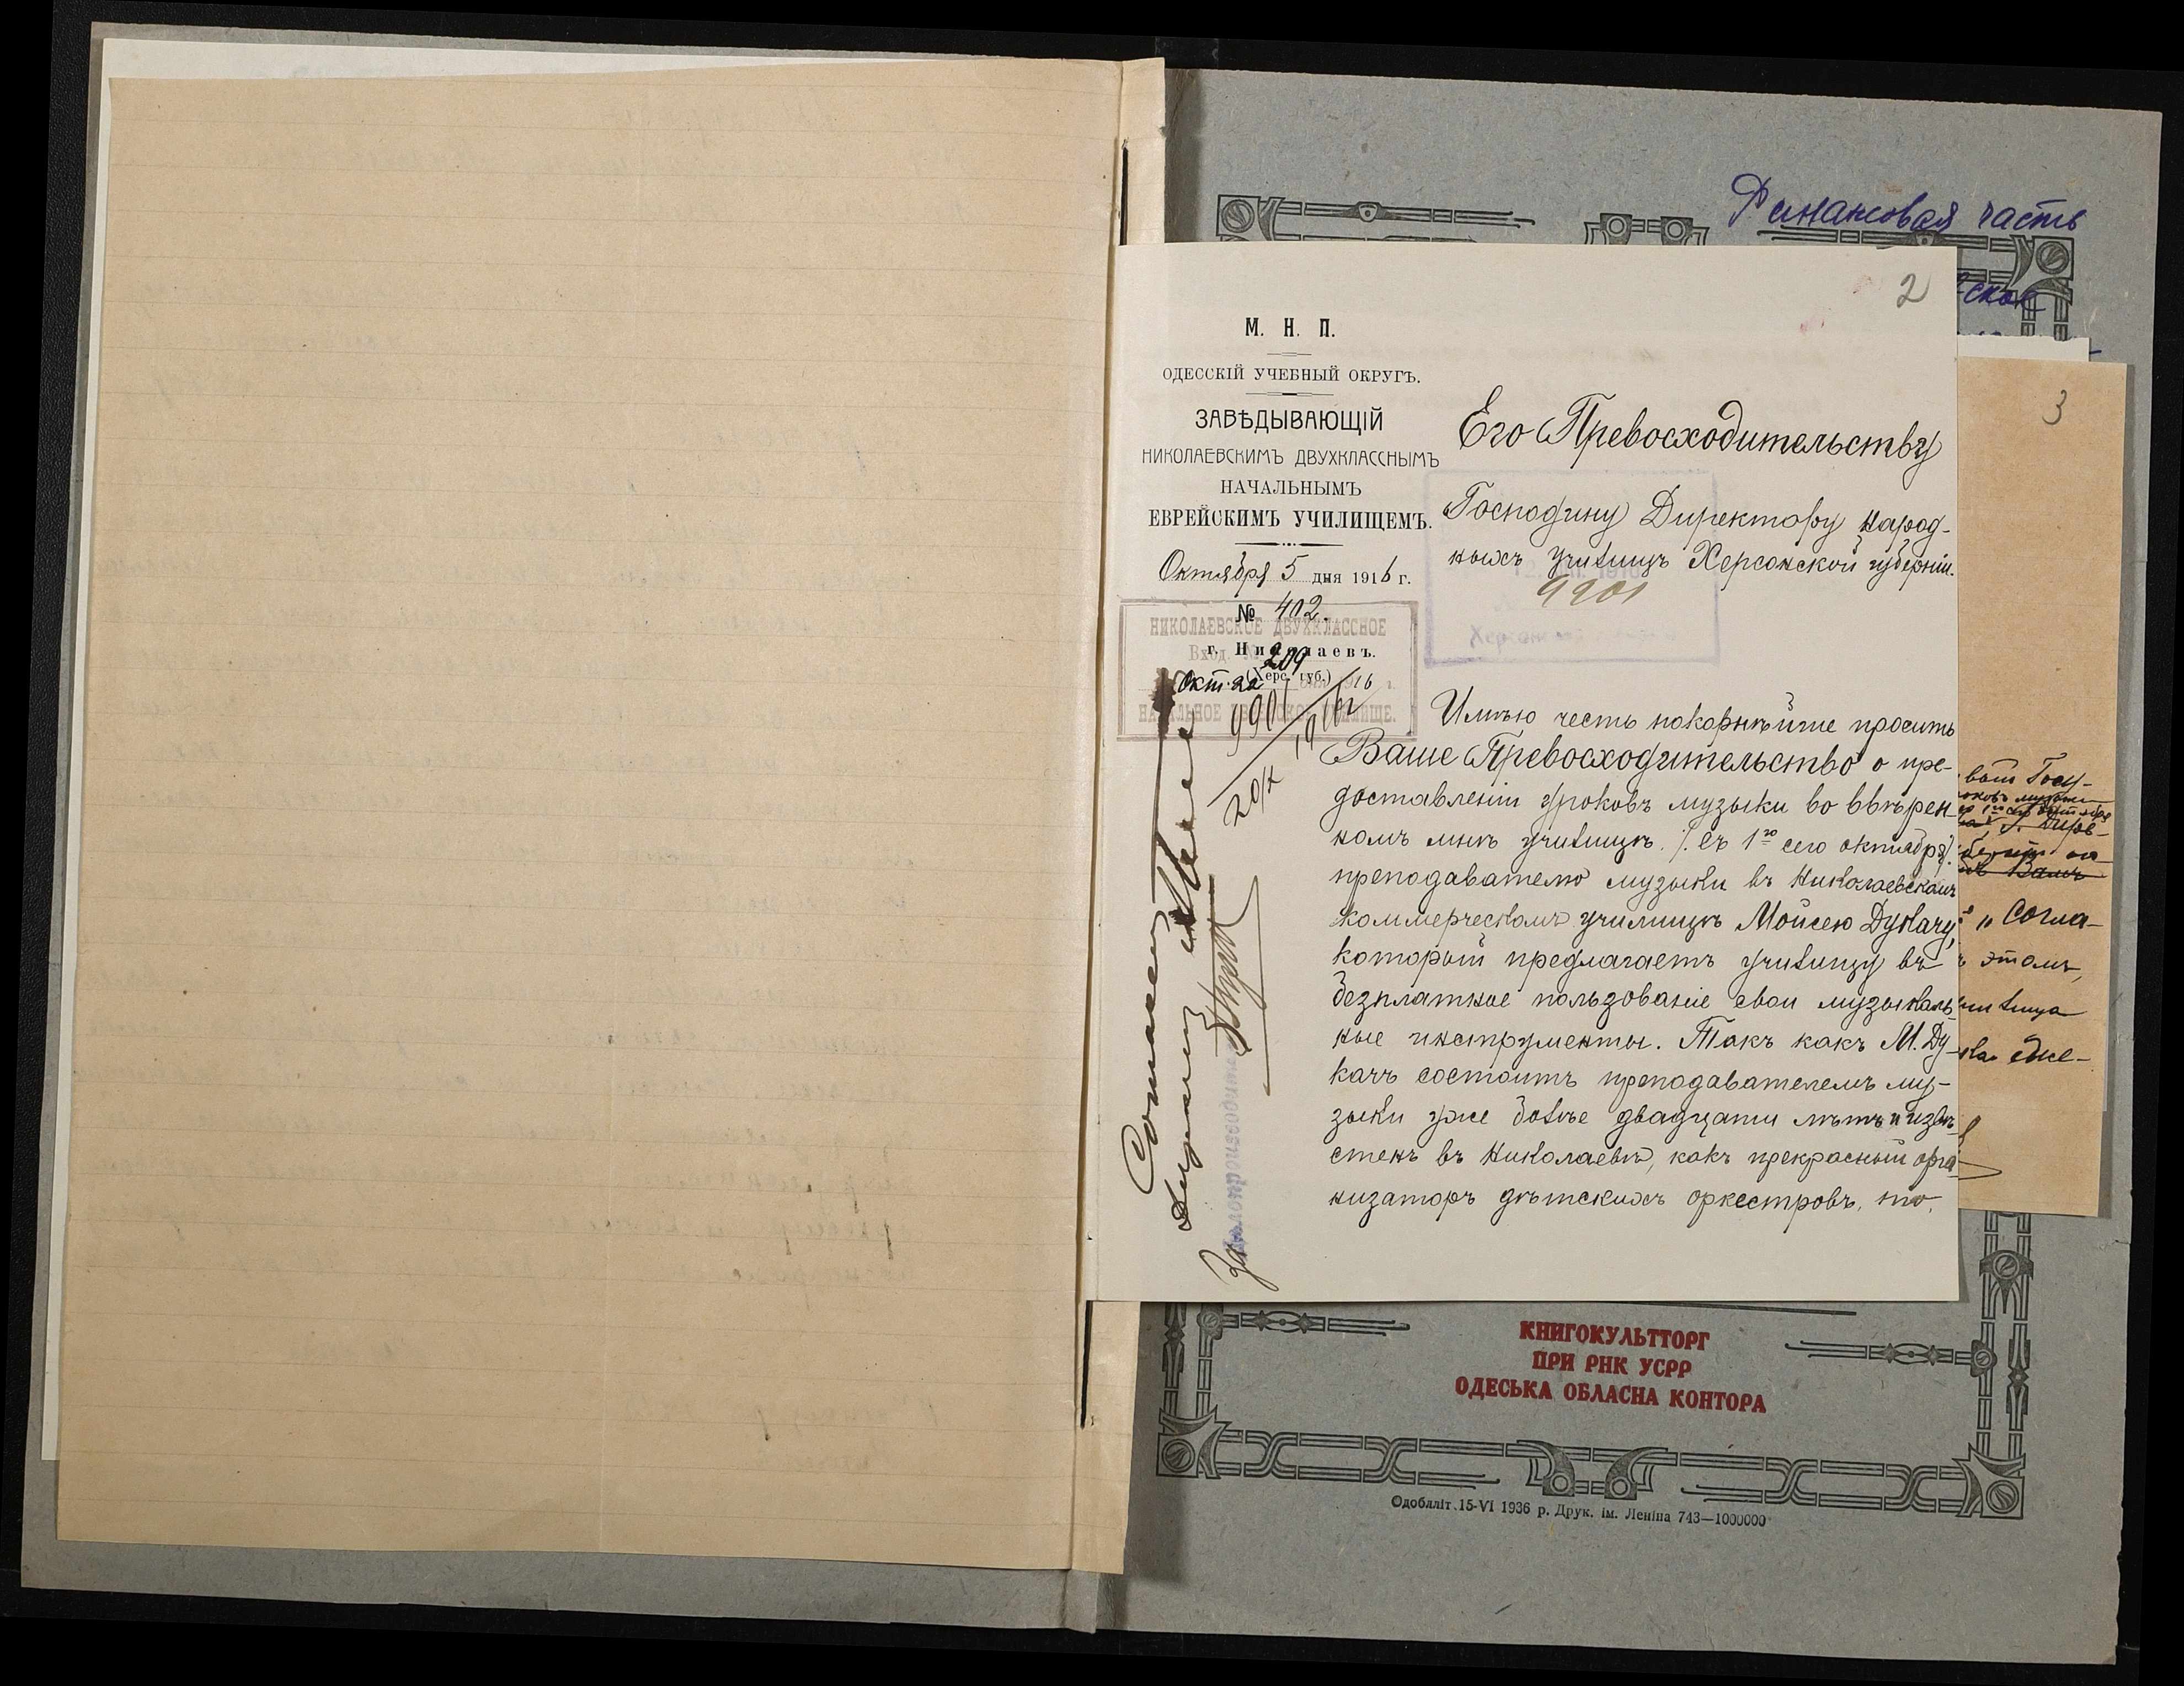 Финансовая часть
2
3
М. Н. П.
ОДЕССКІЙ УЧЕБНЫЙ ОКРУГЪ.
ЗАВѢДЫВАЮЩІЙ
НИКОЛАЕВСКИМЪ ДВУХКЛАССНЫМЪ
НАЧАЛЬНЫМЪ
ЕВРЕЙСКИМЪ УЧИЛИЩЕМЪ.
Октября 5 дня 1916 г.
№ 402.
г. Николаевъ.
(Херс. губ.)
НИКОЛАЕВСКОЕ ДВУХКЛАССНОЕ
Вход. № 209
Окт. 22 1916 г.
НАЧАЛЬНОЕ ЕВРЕЙСКОЕ УЧИЛИЩЕ.
9901
20/X 1916 г
Согласенъ
За
Его Превосходительству
Господину Директору народ-
ныхъ училищъ Херсонской губерніи.
9901
Имѣю честь покорнѣйше просить
Ваше Превосходительство о пре-
доставленіи уроковъ музыки во ввѣрен-
номъ мнѣ училищѣ /. съ 1го сего октября ./
преподавателю музыки въ Николаевскомъ
коммерческомъ училищѣ Мойсею Дукачу,
который предлагаетъ училищу въ
безплатное пользованіе свои музыкаль-
ные инструменты. Такъ какъ М. Ду-
качъ состоитъ преподавателемъ му-
зыки уже болѣе двадцати лѣтъ и извѣ-
стенъ въ Николаевѣ, какъ прекрасный орга-
низаторъ дѣтскихъ оркестровъ, то,
Госу-
Согла-
этомъ,
КНИГОКУЛЬТТОРГ
ПРИ РНК УСРР
ОДЕСЬКА ОБЛАСНА КОНТОРА
Одобліт. 15-VI 1936 р. Друк. ім. Леніна 743—1000000